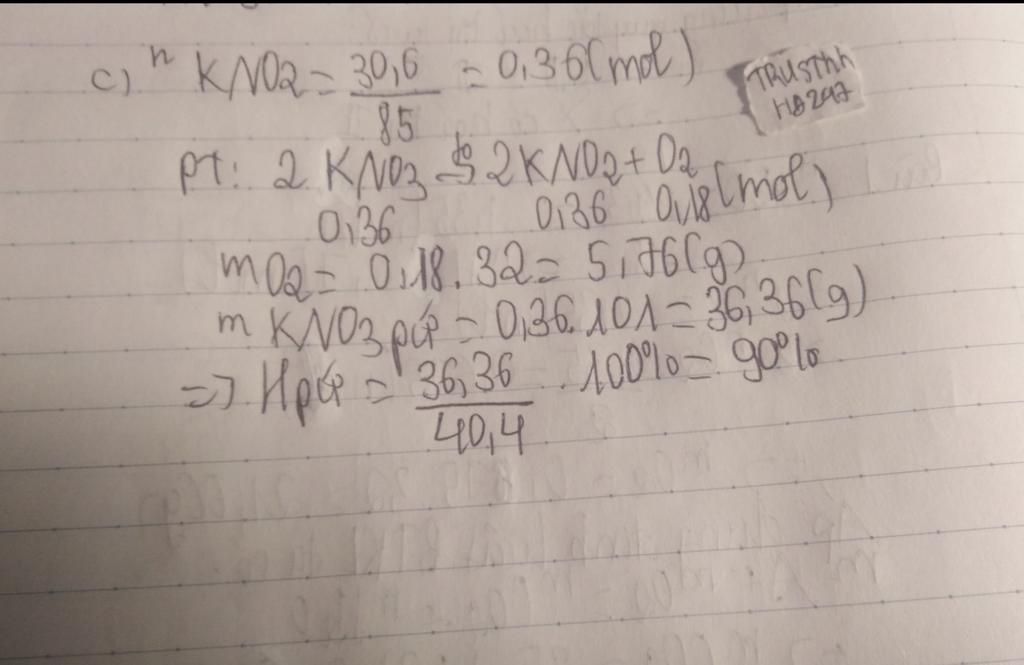 c) n KNO2 = 30,6 / 85 = 0,36 (mol)
TRUSTHH
H8297
pt: 2 KNO3 to→ 2KNO2 + O2
0,36 0,36 0,18 (mol)
mO2 = 0,18 . 32 = 5,76 (g)
m KNO3 pứ = 0,36. 101 = 36,36 (g)
=> Hpứ = 36,36 / 40,4 . 100% = 90%